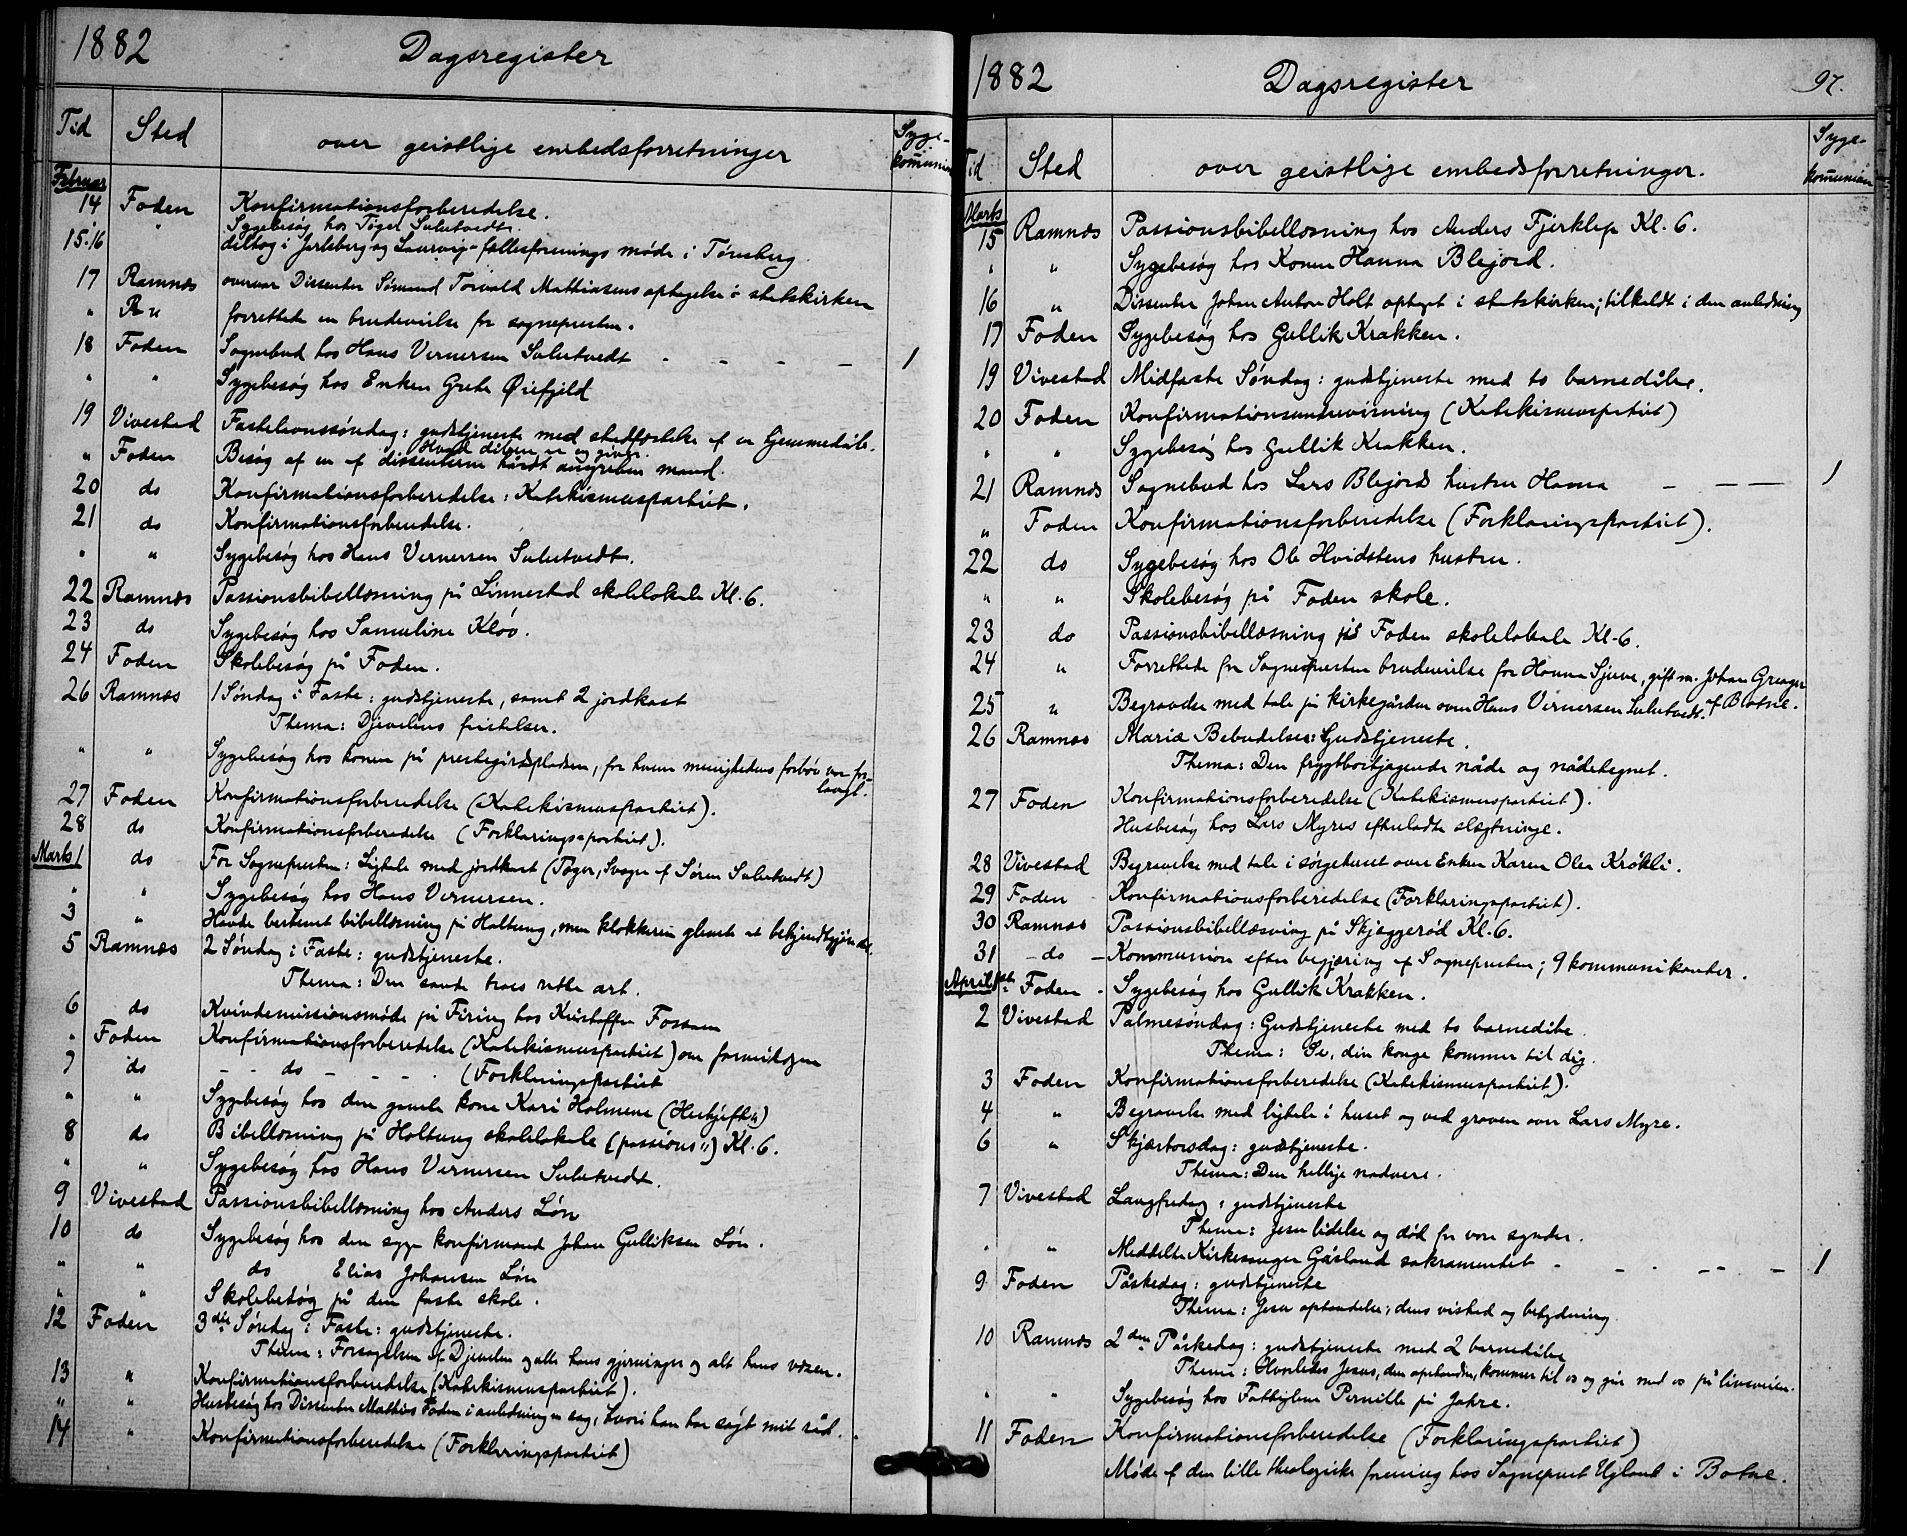 1882 Dagsregister
Tid Sted over geistlige embedsforretninger Syge-kommunion
Februar
14 Foden Konfirmationsforberedelse.
" Sygebesøg hos Tøger Sulutvedt.
15.16 deltog i Jarlsberg og Laurvig-fællesforenings møde i Tønsberg.
17 Ramnæs overvar Dissenter Simund Torvald Mathiasens optagelse i statskirken
" R " forrettede en brudevielse for sognepresten.
18 Foden Sognebud hos Hans Vernersen Sulutvedt - - - - 1
" " Sygebesøg hos Enken Grete Øiefjeld
19 Vivestad Fastelavnssøndag: gudstjeneste med stadfæstelse af en hjemmedåb.
Hvad dåben er og giver.
" Foden Besøg af en af dissenterne hårdt angreben mand.
20 do Konfirmationsforberedelse: Katekismuspartiet.
21 do Konfirmationsforberedelse.
" " Sygebesøg hos Hans Vernersen Sulutvedt.
22 Ramnæs Passionsbibellæsning på Linnestad skolelokale Kl. 6.
23 do Sygebesøg hos Samuline Kløv.
24 Foden Skolebesøg på Foden.
26 Ramnæs 1 Søndag i Faste: gudstjeneste, samt 2 jordkast
Thema: Djevelens fristelser.
" " Sygebesøg hos konen på prestegårdspladsen, for hvem menighedens forbøn var for-
langt.
27 Foden Konfirmationsforberedelse (Katekismuspartiet).
28 do Konfirmationsforberedelse (Forklaringspartiet).
Marts 1 do For Sognepresten: Ligtale med jordkast (Tøger, Svoger af Søren Sulutvedt)
" " Sygebesøg hos Hans Vernersen.
3 " Havde bestemt bibellæsning på Holtung, men klokkeren glemte at bekjendtgjøre det.
5 Ramnæs 2 Søndag i Faste: gudstjeneste.
Thema: Den sande troes rette art.
6 do Kvindemissionsmøde på Firing hos Kristoffer Fossum
" Foden Konfirmationsforberedelse (Katekismuspartiet) om formiddagen
7 do - - do - - - - (Forklaringspartiet
" " Sygebesøg hos den gamle kone Kari Holmene
8 do Bibellæsning på Holtung skolelokale (passions") Kl. 6.
" " Sygebesøg hos Hans Vernersen Sulutvedt.
9 Vivestad Passionsbibellæsning hos Anders Løn
10 do Sygebesøg hos den syge konfirmand Johan Gulliksen Løn.
" " do Elias Johansen Løn
" " Skolebesøg på den faste skole.
12 Foden 3die Søndag i Faste: gudstjeneste.
Thema: Forsagelsen af Djevelen og alle hans gjerninger og alt hans væsen.
13 " Konfirmationsforberedelse (Katekismuspartiet).
" " Husbesøg hos Dissenter Mathias Foden i anledning en sag, hvori han har søgt mit råd.
14 " Konfirmationsforberedelse (Forklaringspartiet)
1882 Dagsregister 97.
Tid Sted over geistlige embedsforretninger. Syge-kommunion
Marts
15 Ramnæs Passionsbibellæsning hos Anders Fjerklep Kl. 6.
" " Sygebesøg hos Konen Hanna Blejord.
16 " Dissenter Johan Anton Holt optaget i statskirken; tilkaldt i den anledning
17 Foden Sygebesøg hos Gullik Krakken.
19 Vivestad Midfaste Søndag: gudstjeneste med to barnedåbe.
20 Foden Konfirmationsundervisning (Katekismuspartiet)
" " Sygebesøg hos Gullik Krakken.
21 Ramnæs Sognebud hos Lars Blejords hustru Hanna - - - — 1
" Foden Konfirmationsforberedelse (Forklaringspartiet).
22 do Sygebesøg hos Ole Hvidstens hustru.
" " Skolebesøg på Foden skole.
23 do Passionsbibellæsning på Foden skolelokale Kl. 6.
24 " Forrettede for Sognepresten brudevielse for Hanna Sjuve, gift m. Johan Greager
af Botne.
25 " Begravelse med tale på kirkegården over Hans Vernersen Sulutvedt.
26 Ramnæs Mariæ Bebudelse: Gudstjeneste.
Thema: Den frygtbortjagende nåde og nådetegnet.
27 Foden Konfirmationsforberedelse (Katekismuspartiet).
Husbesøg hos Lars Myres efterladte slægtninge.
28 Vivestad Begravelse med tale i sørgehuset over Enken Karen Olea Krøkli.
29 Foden Konfirmationsforberedelse (Forklaringspartiet).
30 Ramnæs Passionsbibellæsning på Skjæggerød Kl. 6.
31 - do - Kommunion efter begjæring af Sognepresten; 9 kommunikanter.
April 1st Foden - Sygebesøg hos Gullik Krakken.
2 Vivestad Palmesøndag: Gudstjeneste med to barnedåbe
Thema: Se, din konge kommer til dig.
3 Foden Konfirmationsforberedelse (Katekismuspartiet).
4 " Begravelse med ligtale i huset og ved graven over Lars Myre.
6 " Skjærtorsdag: gudstjeneste.
Thema: Den hellige nadvere.
7 Vivestad Langfredag: gudstjeneste
Thema: Jesu lidelse og død for vore synder.
" " Meddelte Kirkesanger Gåsland sakramentet - - - - - 1
9 Foden Påskedag: gudstjeneste
Thema: Jesu opstandelse; dens vished og betydning
10 Ramnæs 2den Påskedag: gudstjeneste med 2 barnedåbe
Thema: Hvorledes Jesus, den opstandne, kommer til os og går med os på livsveien.
" " Sygebesøg hos Fattiglem Pernille på Jahre.
11 Foden Konfirmationsforberedelse (Forklaringspartiet)
Møde af den lille theologiske forening hos Sogneprest Ugland i Botne.